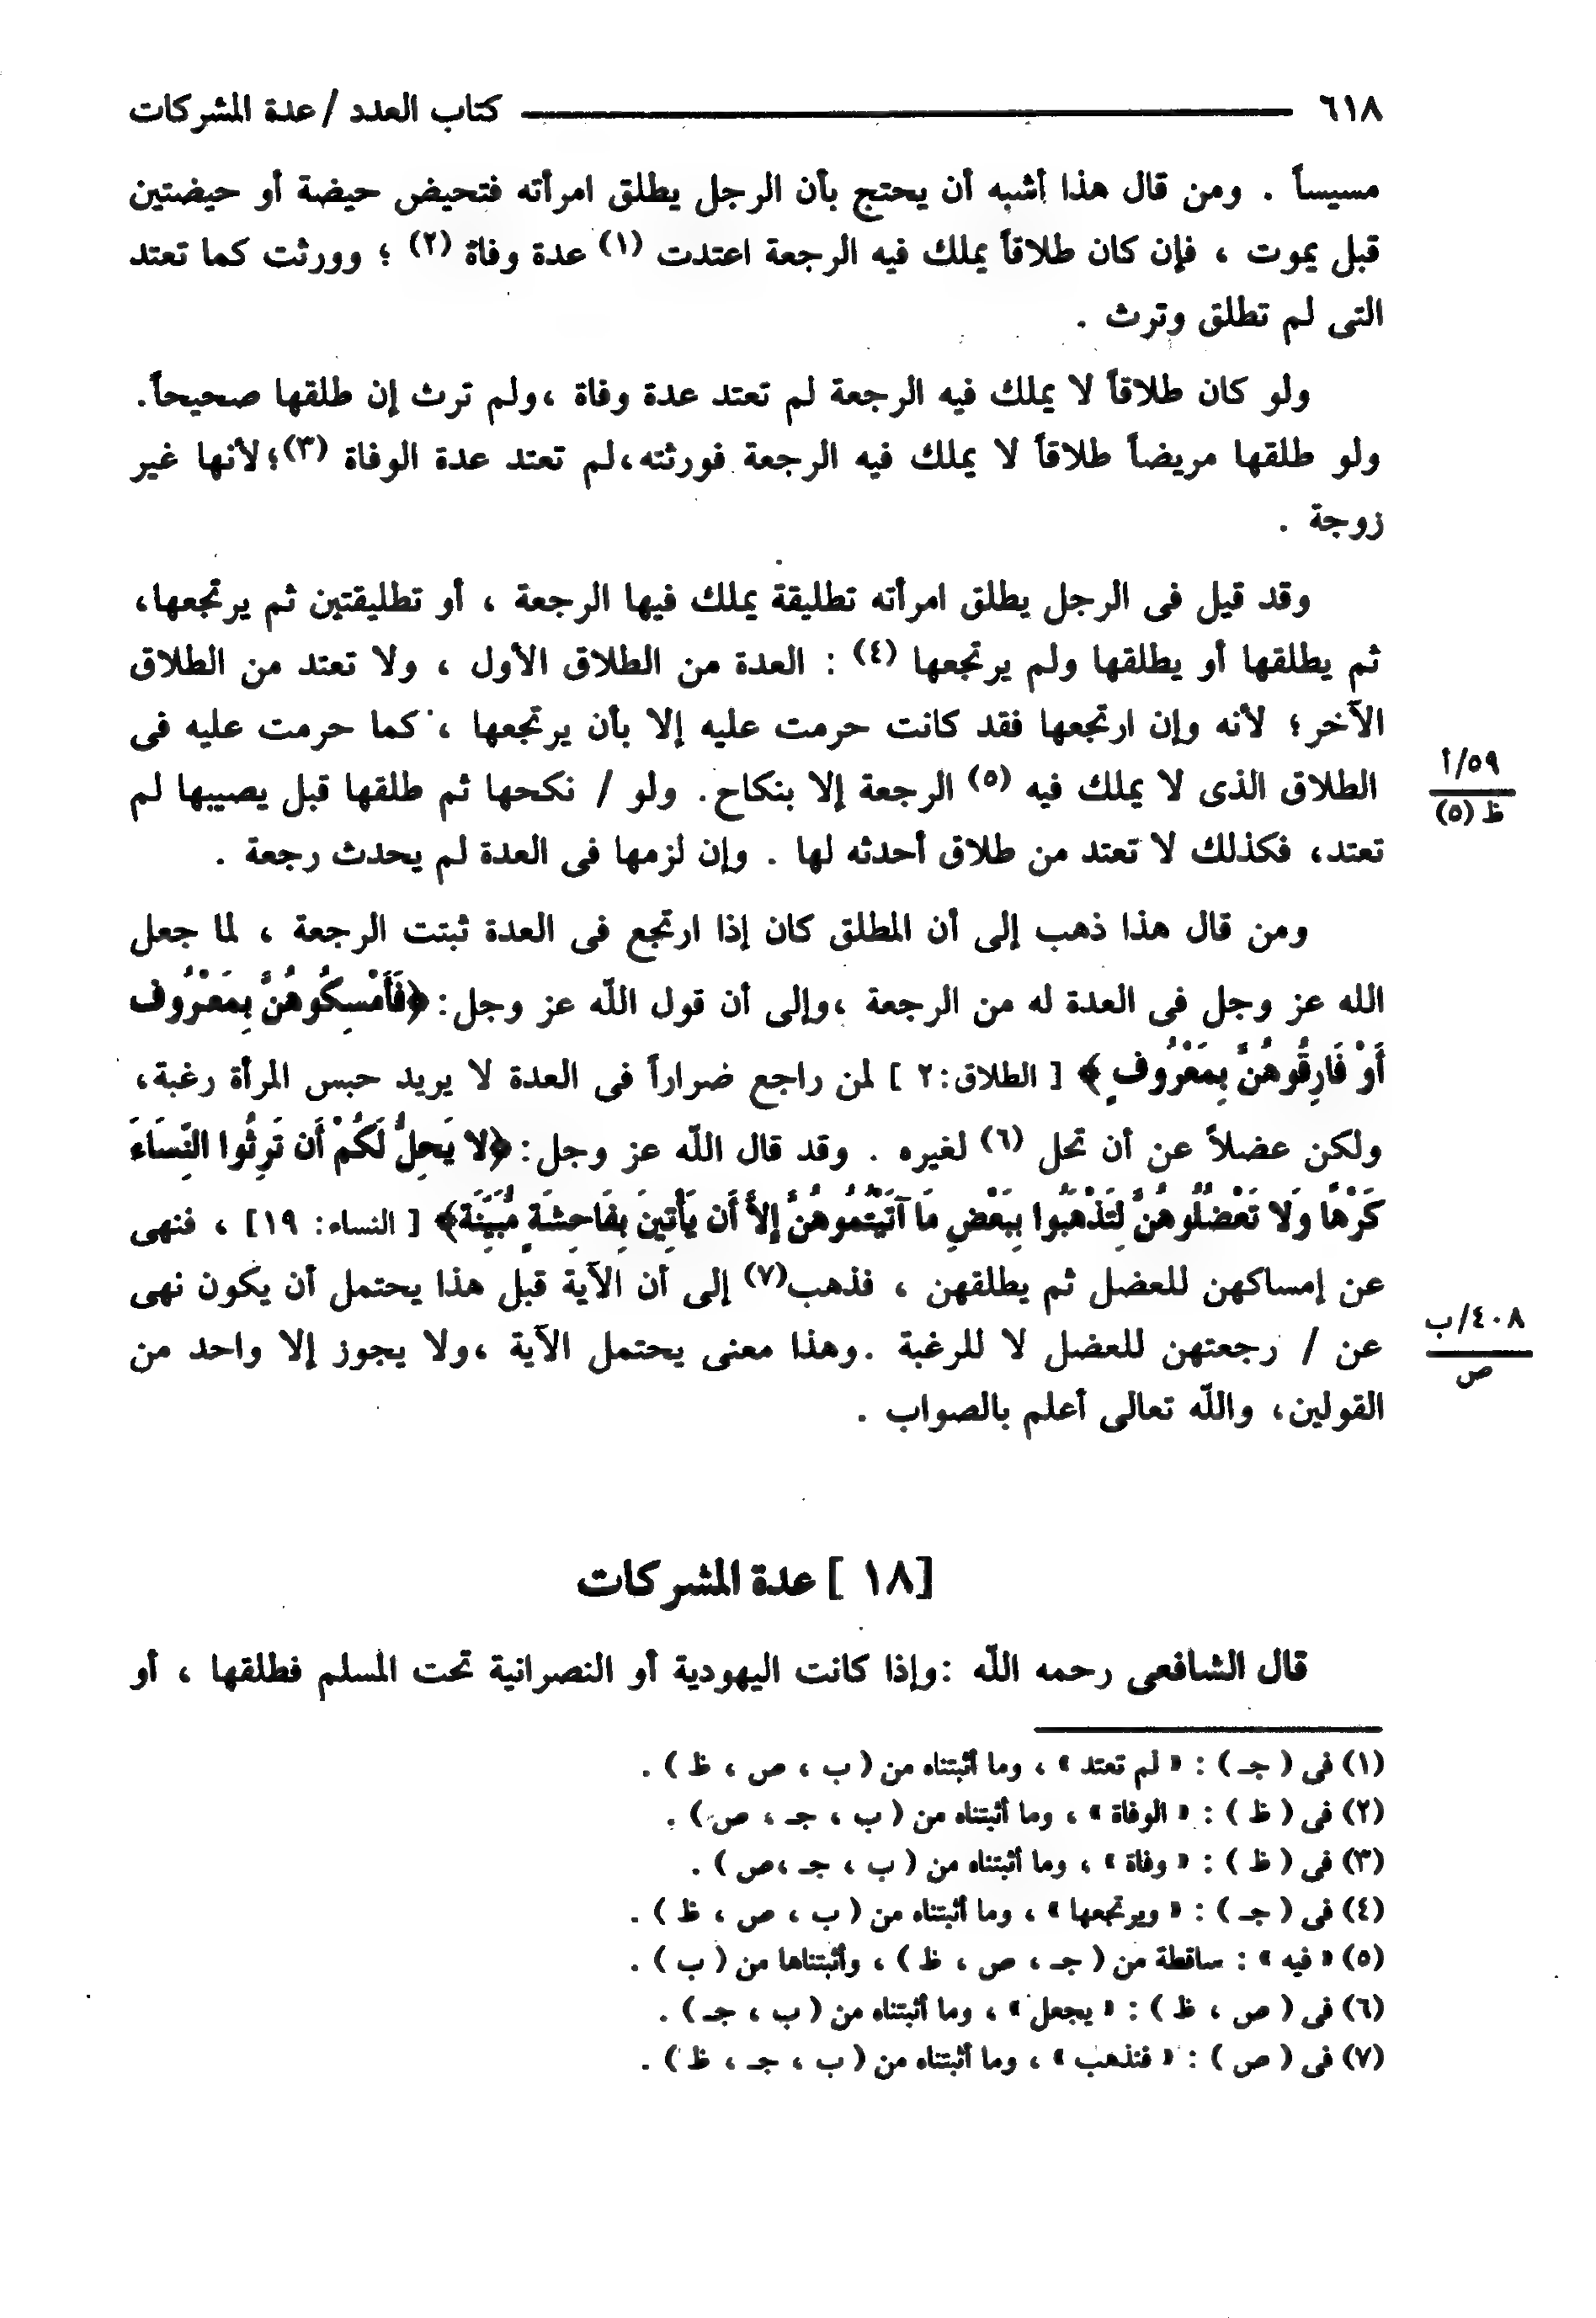 ٦١٨ كتاب العدد / عدة المشركات
مسيساً . ومن قال هذا أشبه أن يحتج بأن الرجل يطلق امرأته فتحيض حيضة أو حيضتين
قبل يموت ، فإن كان طلاقاً يملك فيه الرجعة اعتدت (١) عدة وفاة (٢) ؛ وورثت كما تعتد
التى لم تطلق وترث .
ولو كان طلاقاً لا يملك فيه الرجعة لم تعتد عدة وفاة ،ولم ترث إن طلقها صحيحاً.
ولو طلقها مريضاً طلاقاً لا يملك فيه الرجعة فورثته،لم تعتد عدة الوفاة (٣)؛لأنها غير
زوجة .
وقد قيل فى الرجل يطلق امرأته تطليقة يملك فيها الرجعة ، أو تطليقتين ثم يرتجعها،
ثم يطلقها أو يطلقها ولم يرتجعها (٤) : العدة من الطلاق الأول ، ولا تعتد من الطلاق
الآخر؛ لأنه وإن ارتجعها فقد كانت حرمت عليه إلا بأن يرتجعها ، كما حرمت عليه فى
الطلاق الذى لا يملك فيه (٥) الرجعة إلا بنكاح. ولو / نكحها ثم طلقها قبل يصيبها لم
٥٩/أ
ظ (٥)
تعتد، فكذلك لا تعتد من طلاق أحدثه لها . وإن لزمها فى العدة لم يحدث رجعة .
ومن قال هذا ذهب إلى أن المطلق كان إذا ارتجع فى العدة ثبتت الرجعة ، لما جعل
الله عز وجل فى العدة له من الرجعة ،وإلى أن قول اللّه عز وجل: ﴿فَأَمْسِكُوهُنَّ بِمَعْرُوف
أَوْ فَارِقُوهُنَّ بِمَعْرُوفٍ ﴾ [ الطلاق:٢ ] لمن راجع ضراراً فى العدة لا يريد حبس المرأة رغبة،
ولكن عضلاً عن أن تحل (٦) لغيره . وقد قال اللّه عز وجل: ﴿لا يَحِلُّ لَكُمْ أَن تَرِثُوا النِّسَاءَ
كَرْهًا وَلا تَعْضُلُوهُنَّ لِتَذْهَبُوا بِبَعْضِ مَا آتَيْتُمُوهُنَّ إِلاَّ أَن يَأْتِينَ بِفَاحِشَةٍ مُّبَيِّنَة﴾ [ النساء: ١٩] ، فنهى
عن إمساكهن للعضل ثم يطلقهن ، فذهب(٧) إلى أن الآية قبل هذا يحتمل أن يكون نهى
عن / رجعتهن للعضل لا للرغبة .وهذا معنى يحتمل الآية ،ولا يجوز إلا واحد من
٤٠٨/ب
ص
القولين، واللّه تعالى أعلم بالصواب .
[١٨ ] عدة المشركات
قال الشافعى رحمه اللّه :وإذا كانت اليهودية أو النصرانية تحت المسلم فطلقها ، أو
(١) فى ( جـ ) : « لم تعتد » ، وما أثبتناه من ( ب ، ص ، ظ ) .
(٢) فى ( ظ ) : « الوفاة » ، وما أثبتناه من ( ب ، جـ ، ص ) .
(٣) فى ( ظ ) : « وفاة » ، وما أثبتناه من ( ب ، جـ ،ص ) .
(٤) فى ( جـ ) : « ويرتجعها » ، وما أثبتناه من ( ب ، ص ، ظ ) .
(٥) « فيه » : ساقطة من ( جـ ، ص ، ظ ) ، وأثبتناها من ( ب ) .
(٦) فى ( ص ، ظ ) : « يجعل » ، وما أثبتناه من ( ب ، جـ ) .
(٧) فى ( ص ) : « فتذهب » ، وما أثبتناه من ( ب ، جـ ، ظ ) .